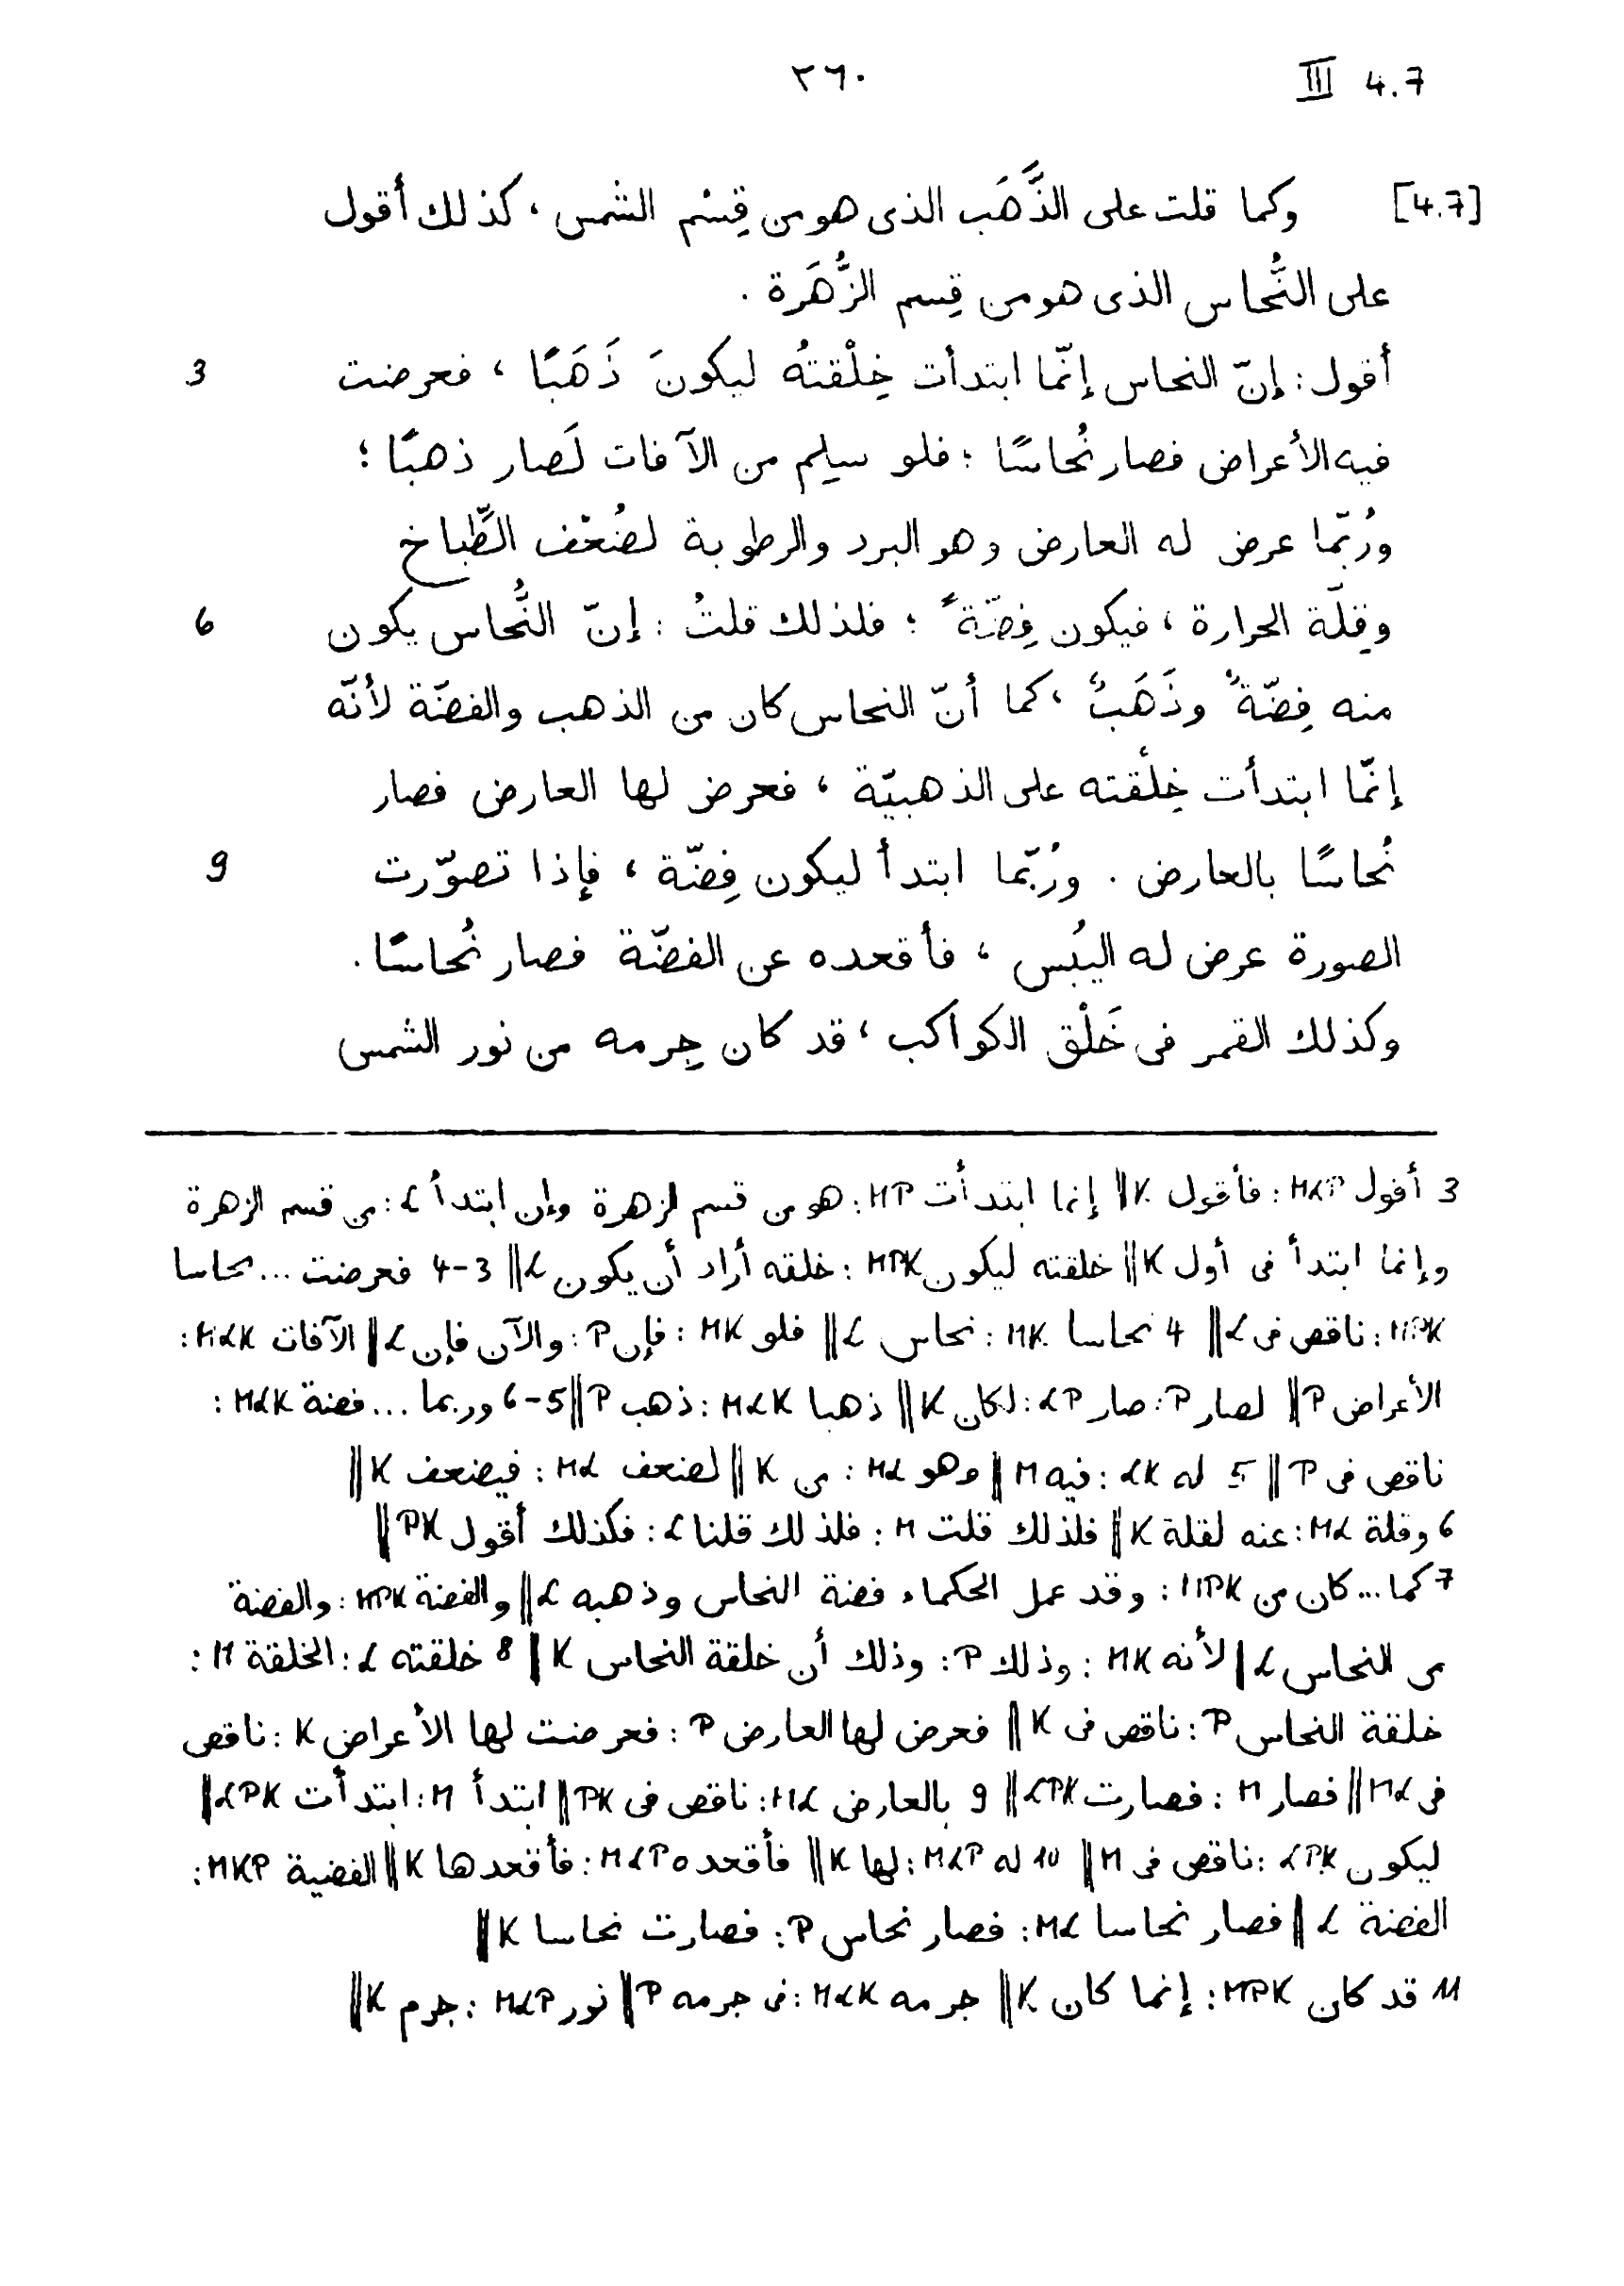 ٢٦٠ III 4.7
[4.7] وكما قلت على الذَّهَب الذى هو من قِسْم الشمس ، كذلك أقول
على النُّحاس الذى هو من قِسم الزُّهَرة .
أقول : إنّ النحاس إنّما ابتدأت خِلْقتهُ ليكونَ ذَهَبًا ، فعرضت 3
فيه الأعراض فصار نُحاسًا ؛ فلو سلِم من الآفات لَصار ذهبًا ؛
ورُبّما عرض له العارض وهو البرد والرطوبة لضُعْف الطِّباخ
وقِلّة الحرارة ، فيكون فِضّةً ؛ فلذلك قلتُ : إنّ النُّحاس يكون 6
منه فِضّةٌ وذَهَبٌ ، كما أنّ النحاس كان من الذهب والفضّة لأنّه
إنّما ابتدأت خِلْقته على الذهبيّة ، فعرض لها العارض فصار
نُحاسًا بالعارض . ورُبّما ابتدأ ليكون فِضّة ، فإذا تصوّرت 9
الصورة عرض له اليُبْس ، فأقعده عن الفضّة فصار نُحاسًا .
وكذلك القمر فى خَلْق الكواكب ، قد كان جِرمه من نور الشمس
3 أقول MLP : فأقول K || إنما ابتدأت MP : هو من قسم الزهرة وإن ابتدأ L : من قسم الزهرة
وإنما ابتدأ فى أول K || خلقته ليكون MPK : خلقه أراد أن يكون L || 3-4 فعرضت ... نحاسا
MPK : ناقص فى L || 4 نحاسا MK : نحاس L || فلو MK : فإن P : والآن فإن L || الآفات MLK :
الأعراض P || لصار P : صار LP : لكان K || ذهبا MLK : ذهب P || 5-6 وربما ... فضة MLK :
ناقص فى P || 5 له LK : فيه M || وهو ML : من K || لضعف ML : فيضعف K ||
6 وقلة ML : عنه لقلة K || فلذلك قلت M : فلذلك قلنا L : فكذلك أقول PK ||
7 كما ... كان من MPK : وقد عمل الحكماء فضة النحاس وذهبه L || والفضة MPK : والفضة
من النحاس L || لأنه MK : وذلك P : وذلك أن خلقة النحاس K || 8 خلقته L : الخلقة M :
خلقة النحاس P : ناقص فى K || فعرض لها العارض P : فعرضت لها الأعراض K : ناقص
فى ML || فصار M : فصارت LPK || 9 بالعارض ML : ناقص فى PK || ابتدأ M : ابتدأت LPK ||
ليكون LPK : ناقص فى M || 10 له MLP : لها K || فأقعده MLP : فأقعدها K || الفضية MKP :
الفضة L || فصار نحاسا ML : فصار نحاس P : فصارت نحاسا K ||
11 قد كان MPK : إنما كان K || جرمه MLK : فى جرمه P || نور MLP : جرم K ||